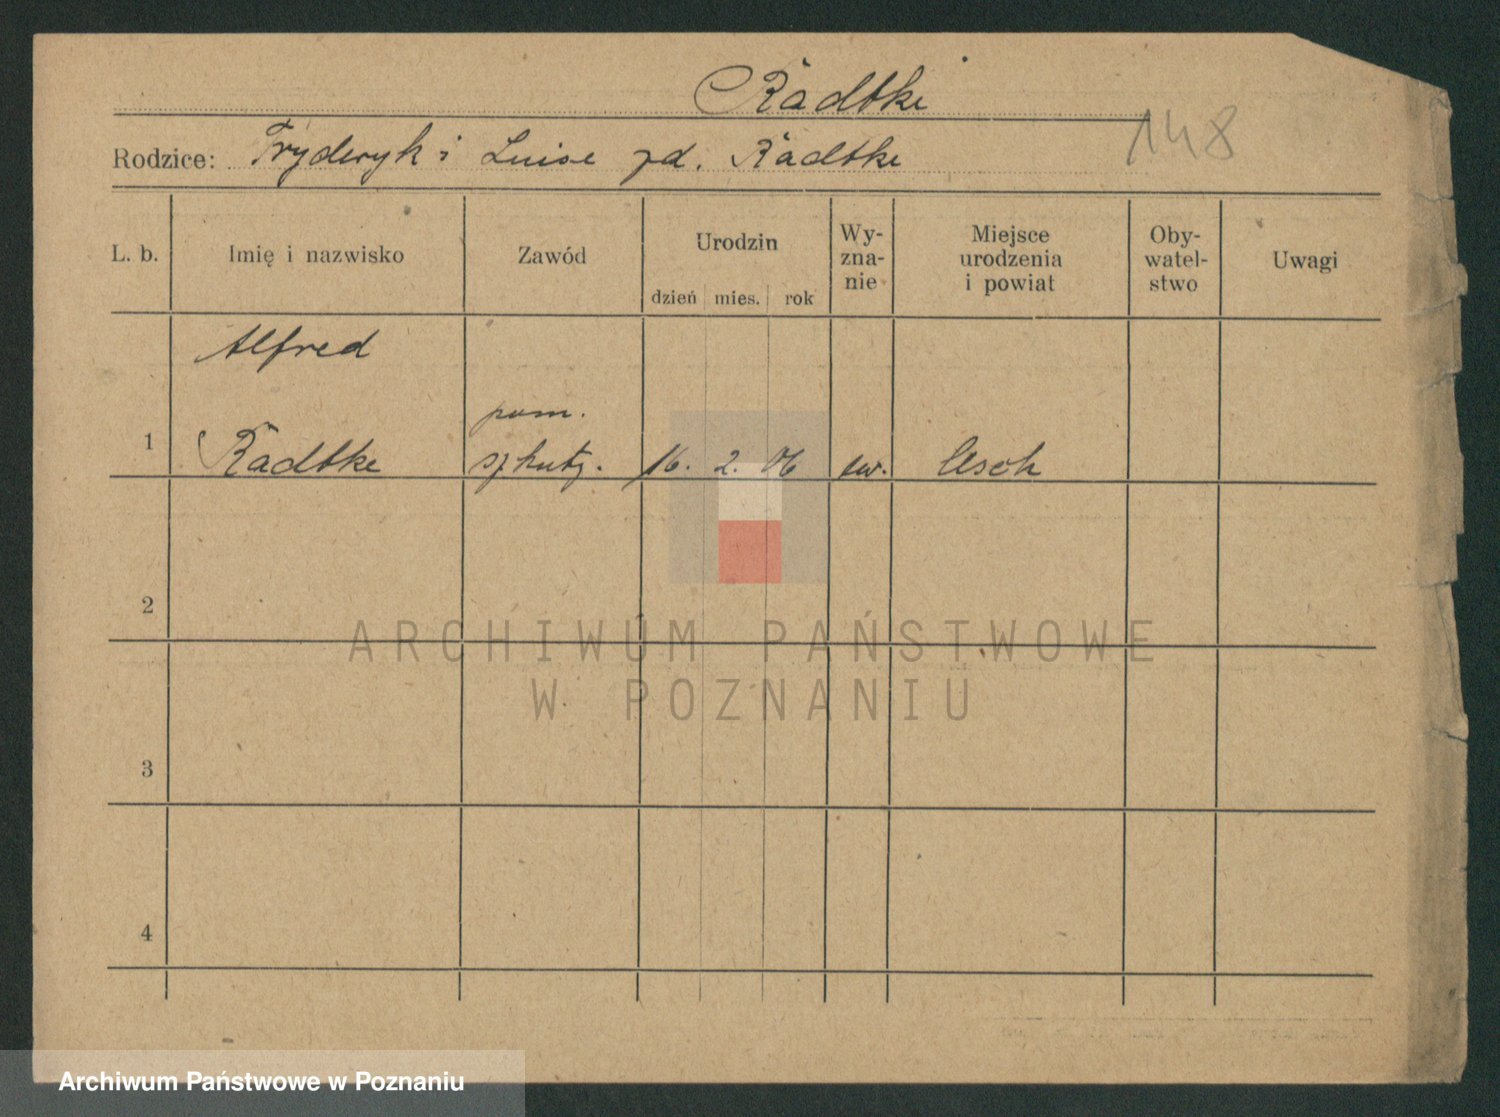 Radtke
148
Rodzice: Fryderyk i Luise zd. Radtke
L. b. Imię i nazwisko Zawód Urodzin dzień mies. rok Wy-zna-nie Miejsce urodzenia i powiat Oby-watel-stwo Uwagi
Alfred
pom.
1 Radtke 16. 2. 06 ew. Usch
2
ARCHIWUM PAŃSTWOWE
W POZNANIU
3
4
Archiwum Państwowe w Poznaniu